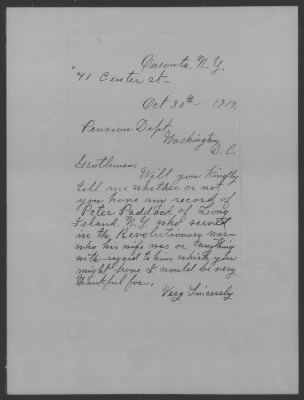 Oneonta, N.Y.
"41 Center st-
Oct 30th - 1919.
Pension Dept,
Washington,
D.C.
Gentlemen:
Will you kindly
tell me whether or not
you have any record of
Peter Paddock of Long
Island. N.Y. who served
in the Revolutionary war-
who his wife was or anything
with regard to him which you
might have I would be very
thankful for.
Very Sincerely